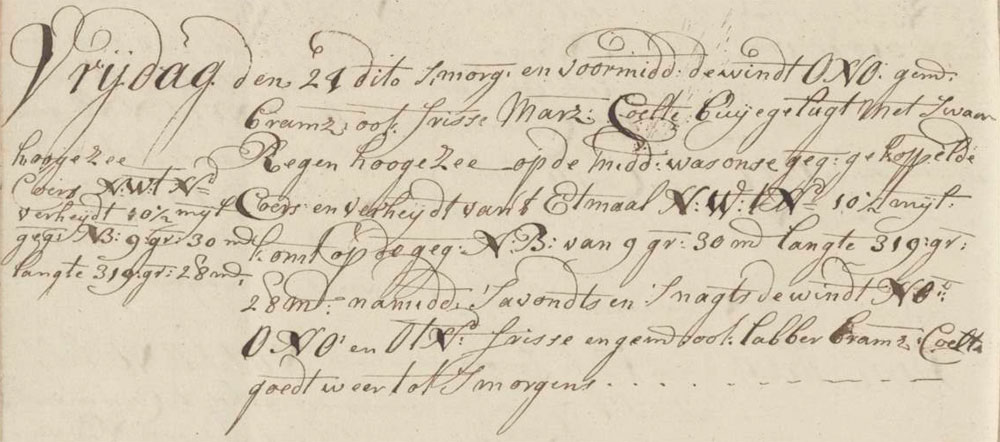 Vrijdag den 24 dito Smorg: en voormidd: de windt ONO: gem:
bramz: ook frisse Marz: Coelte buijege lugt met zwaar
Regen hooge Zee op de midd: was onse geg: gekoppelde
Coers en verheijdt vant Etmaal N:Wd:t Nd: 10½ mijl:
komt op de geg: N:B: van 9 gr: 30 m langte 319: gr:
28 m: namidd: Savondts en Snagts de windt NO:
ONO: en Ot Nd: frisse en gem: ook labber bramz: Coelte
goedt weer tot Smorgens
hooge Zee
Coers N:W:t Nd
verheijdt 10½ mijl
geg: NB: 9: gr: 30 m
langte 319: gr: 28 m: